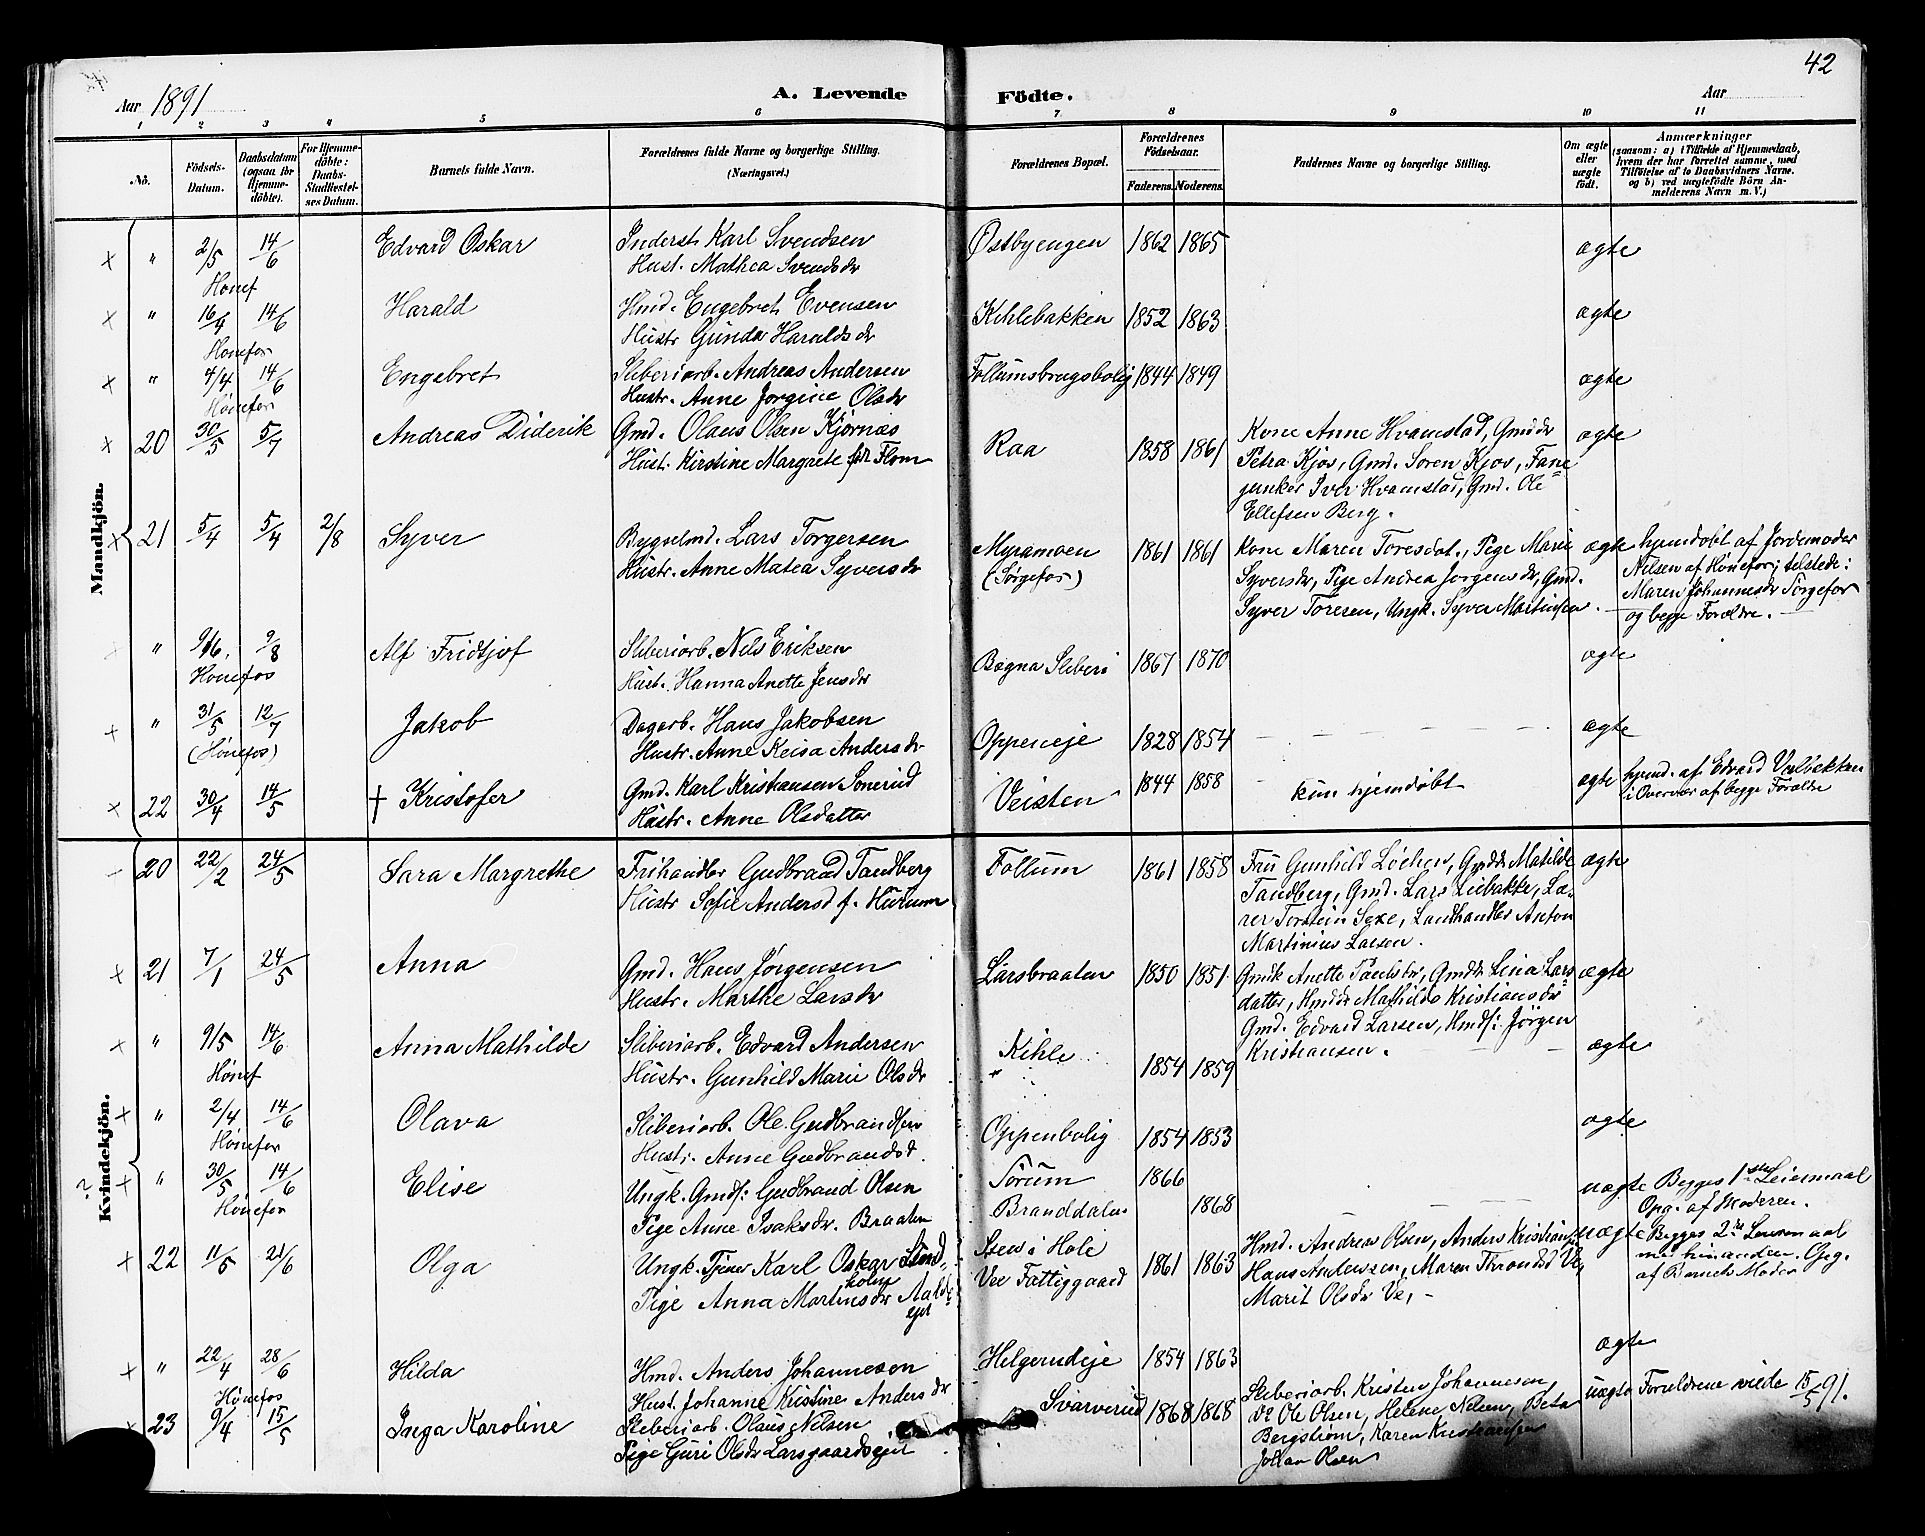 42
Aar 1891 A. Levende Födte. Aar
1 2 3 4 5 6 7 8 9 10 11
No.
Födsels-Datum.
Daabsdatum (ogsaa for Hjemme-döbte).
For Hjemme-döbte: Daabs-Stadfæstel-ses Datum.
Barnets fulde Navn.
Forældrenes fulde Navne og borgerlige Stilling.
(Næringsvei.)
Forældrenes Bopæl.
Forældrenes Födselsaar.
Faderens. Moderens.
Faddernes Navne og borgerlige Stilling.
Om ægte eller uægte födt.
Anmærkninger
(saasom: a) i Tilfælde af Hjemmedaab, hvem der har forrettet samme, med Tilföielse af to Daabsvidners Navne. og b) ved uægtefödte Börn An-melderens Navn m. V.)
Mandkjön.
" 2/5 14/6 Edvard Oskar Inderst Karl Svendsen Østbyengen 1862 1865 ægte
Hønef Hust. Mathea Svendsdr
" 16/4 14/6 Harald Hmd. Engebret Evensen Kihlebakken 1852 1863 ægte
Hønefos Hustr Gunda Haraldsdr
" 4/4 14/6 Engebret Sliberiarb. Andreas Andersen Follumsbrugsbolig 1844 1849 ægte
Hønefos Hustr. Anne Jorgine Olsdr
20 30/5 5/7 Andreas Diderik Gmd. Olaus Olsen Kjörnæs Raa 1858 1861 Kone Anne Hvamstad, Gmddr ægte
Hust. Kirstine Margrete fdt Flom Petra Kjos, Gmd. Soren Kjos, Fane
junker Iver Hvamstad, Gmd. Ole
Ellefsen Berg.
21 5/4 5/4 2/8 Syver Bygselmd. Lars Torgersen Myramoen 1861 1861 Kone Maren Toresdat., Pige Marie ægte hjemdøbt af Jordemoder
Hustr. Anne Matea Syversdr (Sørgefos) Syversdr, Pige Andrea Jorgensdr, Gmd. Nilsen af Hønefos; tilstede:
Syver Toresen, Ungk. Syver Martinsen. Maren Johannesdr Sorgefos
og begge Forældre.
" 9/6. 9/8 Alf Fridtjof Sliberiarb. Nils Eriksen Bægna Sliberi 1867 1870 ægte
Hønefos Hust. Hanna Anette Jensdr
" 31/5 12/7 Jakob Dagarb. Hans Jakobsen Oppeneje 1828 1854 ægte
(Hønefos) Hustr. Anne Keisa Andersdr
22 30/4 14/5 † Kristofer Gmd. Karl Kristiansen Sonerud Veisten 1844 1858 kun hjemdøbt ægte hjemd. af Edvard Vælbakken
Hustr. Anne Olsdatter i Overvær af begge Forældre
Kvindekjön.
20 22/2 24/5 Sara Margrethe Frihandler Gudbrand Tandberg Follum 1861 1858 Fru Gunhild Löchen, Gmddr Matilde ægte
Hustr Sofie Andersd f. Hurum Tandberg, Gmd. Lars Liebakke, Læ-
rer Torstein Sexe, Landhandler Anton
Martinius Larsen.
21 7/1 24/5 Anna Gmd. Hans Jørgensen Larsbraaten 1850 1851 Gmdk Anette Paulsdr, Gmddr Lina Lars ægte
Hustr. Marthe Larsdr datter, Hmddr Mathilde Kristiansdr
Gmd. Edvard Larsen, Hmdf: Jörgen
Kristiansen.
" 9/5 14/6 Anna Mathilde Sliberiarb. Edvard Andersen Kihle 1854 1859 ægte
Hønef Hustr. Gunhild Marie Olsdr
" 2/4 14/6 Olava Sliberiarb. Ole Gudbrandsen Oppenbolig 1854 1853 ægte
Hønefos Hustr. Anne Gudbrandsd.
" 30/5 14/6 Elise Ungk. Gmdf: Gudbrand Olsen Sörum 1866 uægte Begges 1ste Leiermaal
Hønefos Pige Anne Isaksdr. Braaten Branddalen 1868 Opg. af Moderen.
22 11/5 21/6 Olga Ungk. Tjener Karl Oskar Stend Steen i Hole 1861 1863 Hmd. Andreas Olsen, Anders Kristians uægte Begges 2det Leiermaal
Pige Anna Martinsdr Aalds Vee Fattiggaard Hans Anderssen, Maren Throndsd Ve, med hinanden. Opg.
ejet Marit Olsdr Ve, af Barnets Moder
" 22/4 28/6 Hilda Hmd. Anders Johannesen Helgerudeje 1854 1863 ægte
Hønefos Hust. Johanne Kristine Andersdr
23 9/4 15/5 Inga Karoline Sliberiarb. Olaus Nilsen Svarverud 1868 1868 Sliberiarb. Kristen Johannesen, uægte Forældrene viede 15/5 91.
Pige Guri Olsdr Larsgaardsejet Do Ole Olsen, Helene Nilsen, Beta
Bergström, Karen Kristiansen
Johan Olsen